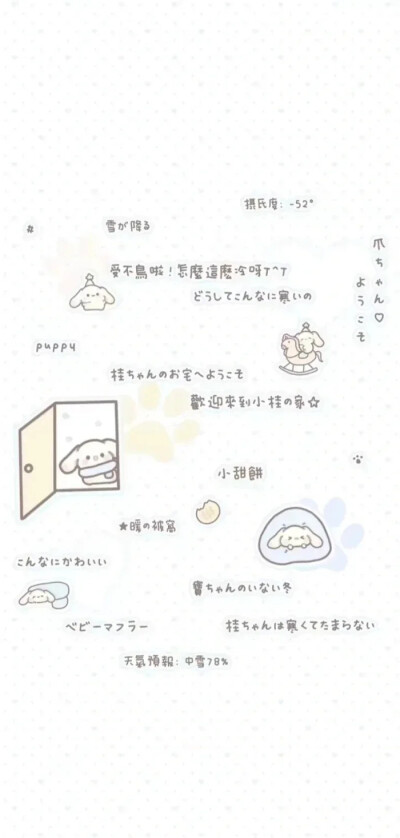 摂氏度: -52°
雪が降る
受不鳥啦！怎麼這麼冷呀T^T
どうしてこんなに寒いの
爪ちゃん♡
ようこそ
puppy
桂ちゃんのお宅へようこそ
歡迎來到小桂の家☆
小甜餅
★暖の被窩
こんなにかわいい
寶ちゃんのいない冬
ベビーマフラー
桂ちゃんは寒くてたまらない
天氣預報: 中雪78%